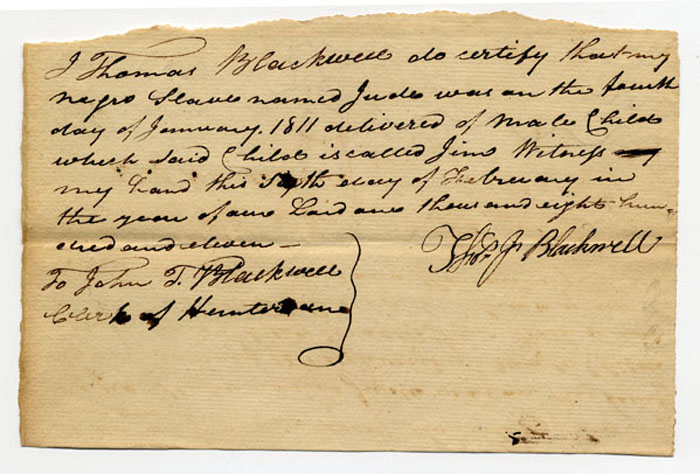 I Thomas Blackwell do certify that my
negro Slave named Jude was on the fourth
day of January. 1811 delivered of Male Child
which said Child is called Jim Witness my
my hand this Sixth day of Februaury in
the year of our Lord one thousand eight hun=
dred and eleven —
Thos. Jr Blackwell
To John T. Blackwell
Clerk of Hunterdon